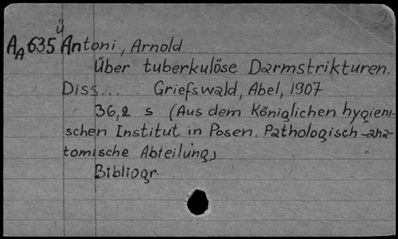 Ü
AA 635 Antoni, Arnold
Über tuberkulöse Darmstrikturen.
Diss... Griefswald, Abel, 1907
36,2 s (Aus dem Königlichen hygieni-
schen Institut in Posen. Pathologisch-ana-
tomische Abteilung)
Bibliogr.